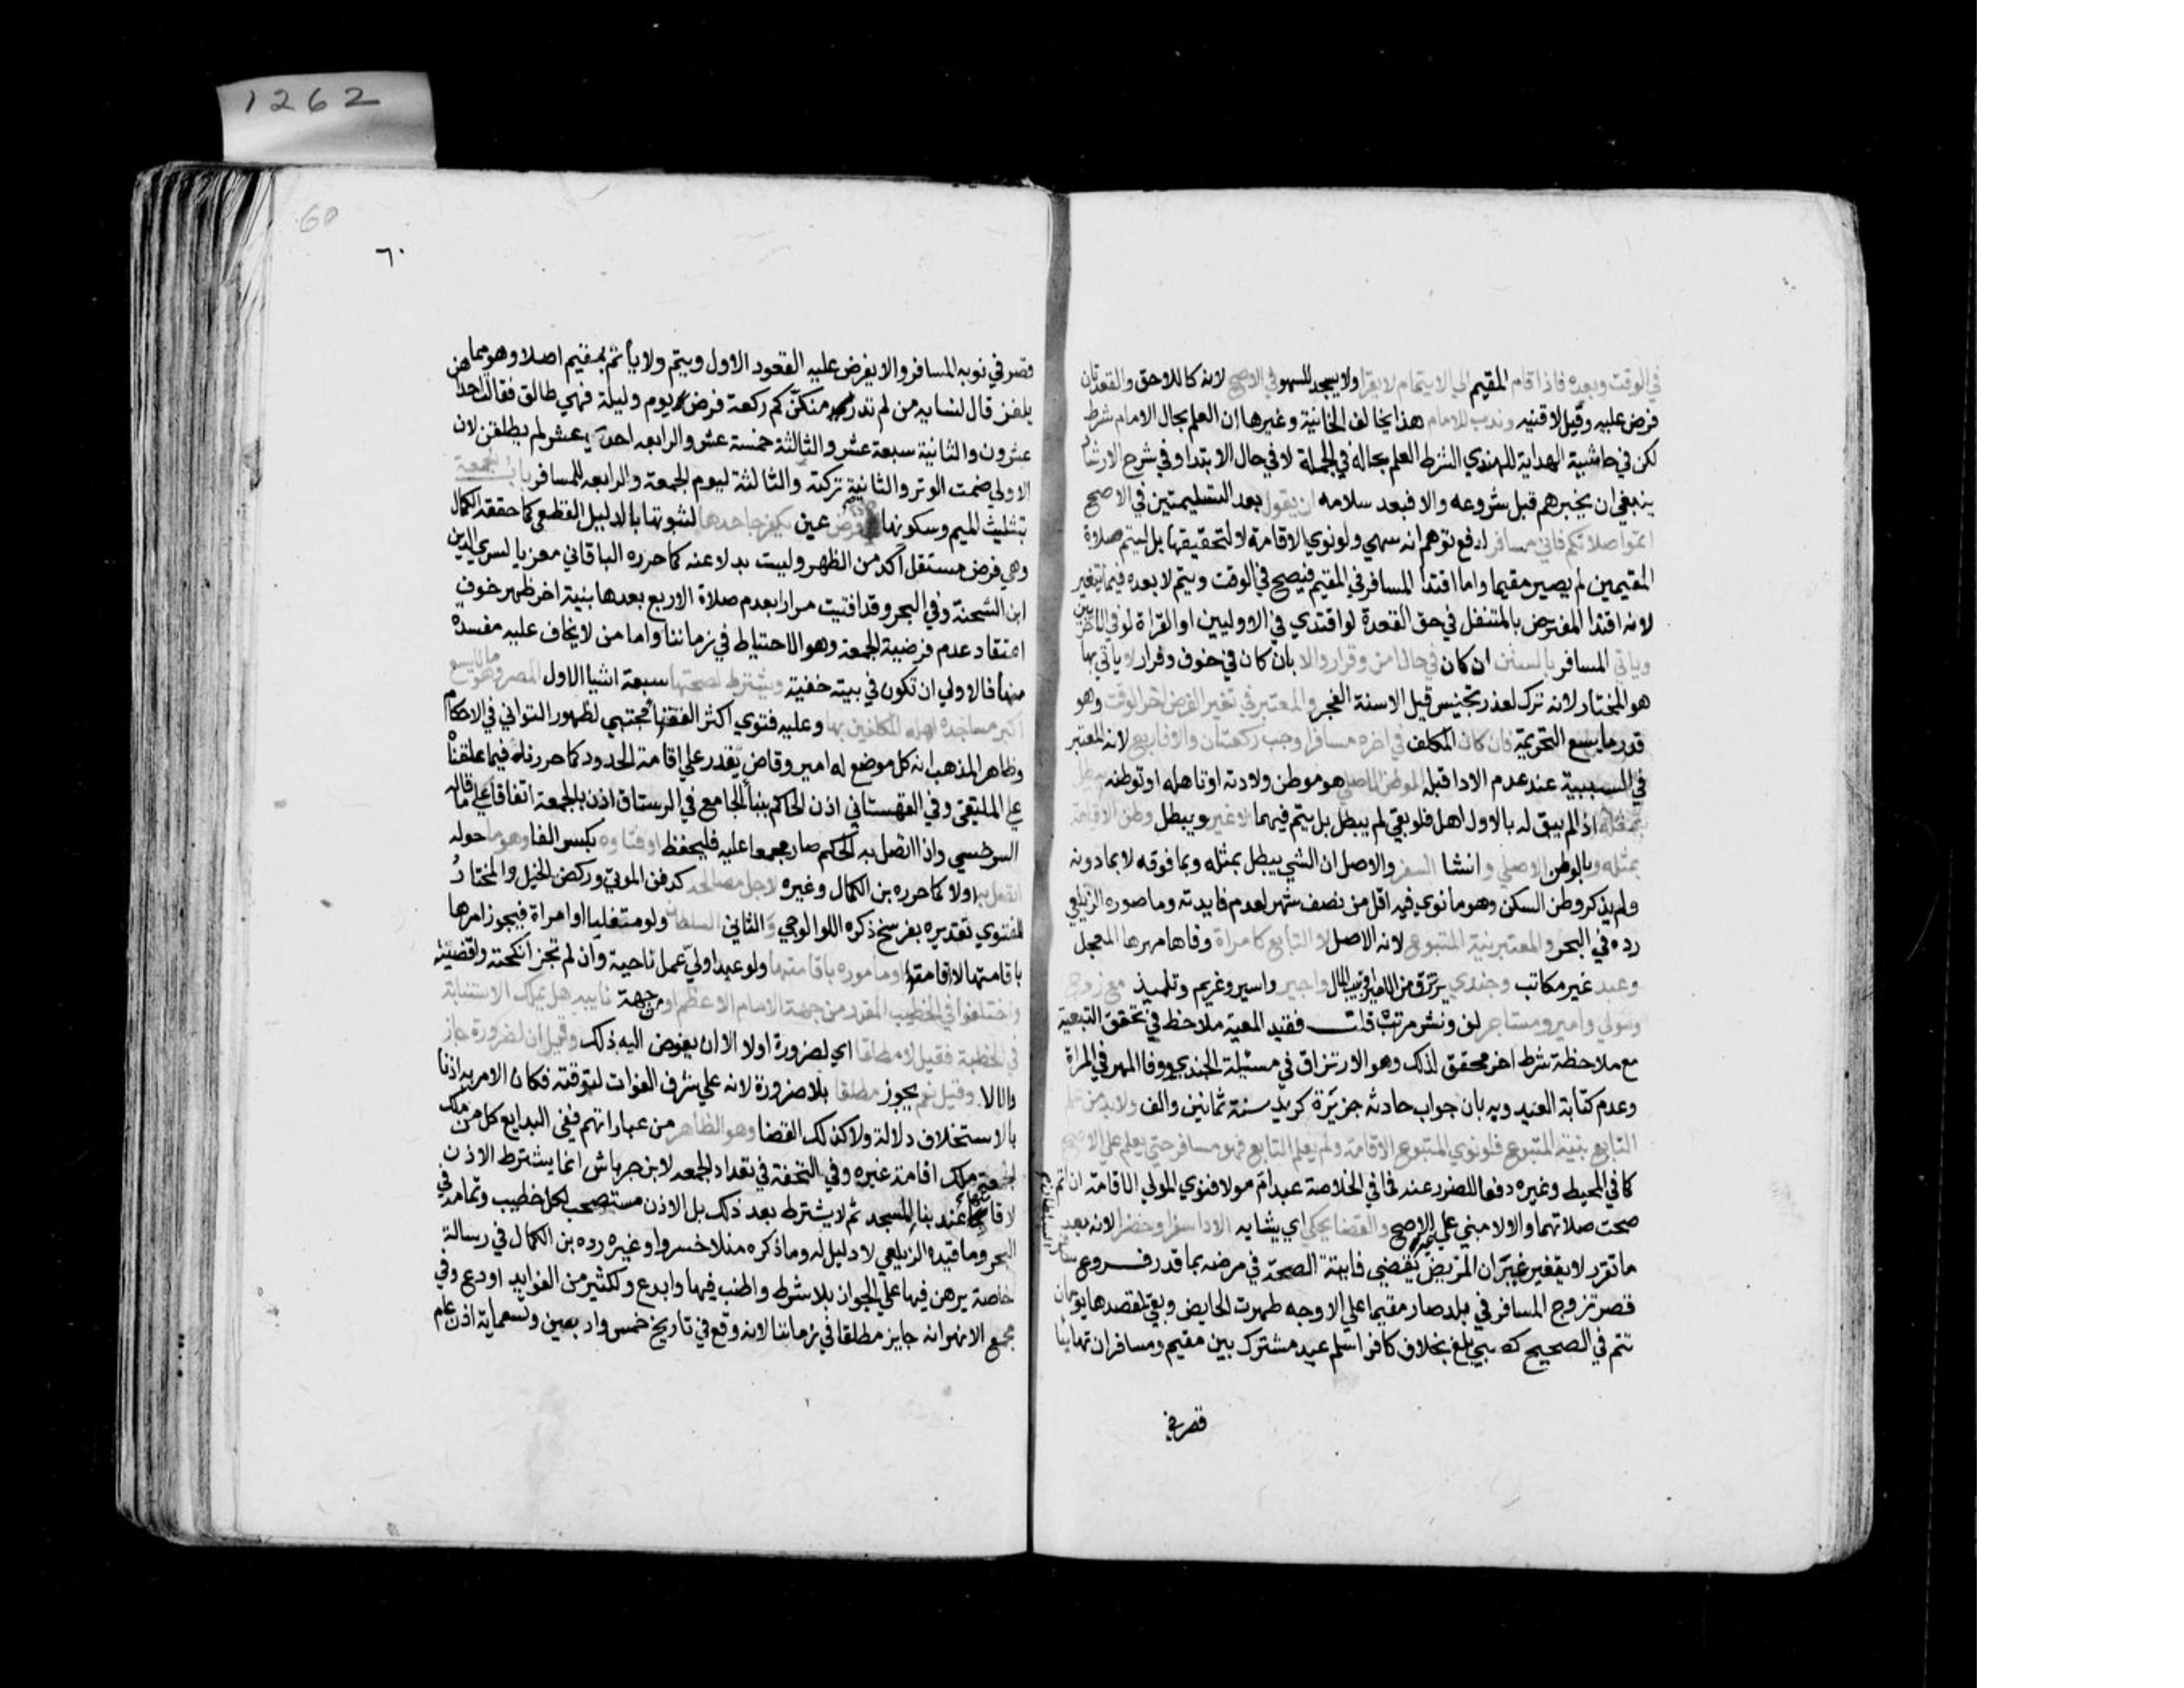 1262
في الوقت وبعده فاذا قام المقيم الي الاتمام لا يقرا ولا يسجد للسهو في الاصح لانه كاللاحق والقعدتان
فرض عليه وقيل لا قنيه وندب للامام هذا يخالف الخانية وغيرها ان العلم بحال الامام شرط
لكن في حاشية الهداية للهندي الشرط العلم بحاله في الجملة لا في حال الابتدا وفي شرح الارشاد
ينبغي ان يخبرهم قبل شروعه والا فبعد سلامه ان يقول بعد التسليمتين في الاصح
اتموا صلاتكم فاني مسافر لدفع توهم انه سهي ولو نوي الاقامة لا لتحقيقها بل ليتم صلاة
المقيمين لم يصير مقيما واما اقتدا المسافر في المقيم فيصح في الوقت ويتم لا بعده فيما يتغير
لانه اقتدا المفترض بالمتنفل في حق القعدة لو اقتدي في الاوليين او القراة لو في الاخريين
وياتي المسافر بالسنن ان كان في حال امن وقرار والا بان كان في خوف وفرار لا ياتي بها
هو المختار لانه ترك لعذر تجنيس قيل الا سنة الفجر والمعتبر في تغير الفرض اخر الوقت وهو
قدر ما يسع التحريمة فان كان المكلف في اخره مسافرا وجب ركعتان والا فاربع لانه المعتبر
في السببية عند عدم الادا قبله الوطن الاصلي هو موطن ولادته او تاهله او توطنه يبطل
بمثله اذا لم يبق له بالاول اهل فلو بقي لم يبطل بل يتم فيهما لا غير ويبطل وطن الاقامة
بمثله وبالوطن الاصلي وانشا السفر والاصل ان الشي يبطل بمثله وبما فوقه لا بما دونه
ولم يذكر وطن السكن وهو ما نوي فيه اقل من نصف شهر لعدم فايدته وما صوره الزيلعي
رده في البحر والمعتبر نية المتبوع لانه الاصل لا التابع كامراة وفاها مهرها المعجل
وعبد غير مكاتب وجندي يرتزق من الامير او بيت المال واجير واسير وغريم وتلميذ مع زوج
ومولي وامير ومستاجر لف ونشر مرتب قلت فقيد المعية ملاحظ في تحقق التبعية
مع ملاحظة شرط اخر محقق لذلك وهو الارتزاق في مسئلة الجندي ووفا المهر في المراة
وعدم كتابة العبد وبه بان جواب حادثه جزيرة كريد سنة ثمانين والف ولا بد من علم
التابع بنية المتبوع فلو نوي المتبوع الاقامة ولم يعلم التابع فهو مسافر حتي يعلم علي الاصح
كما في المحيط وغيره دفعا للضرر عنه فما في الخلاصة عبد ام مولاه فنوي المولي الاقامة ان اتم
صحت صلاتهما والا لا مبني علي خلاف الاصح والقضا يحكي اي يشابه الادا سفرا وحضرا لانه بعد
ما تقرر لا يتغير غير ان المريض يقضي فايتة الصحة في مرضه بما قدر فروع سافر السلطان
قصر تزوج المسافر في بلد صار مقيما علي الاوجه طهرت الحايض وبقي لمقصدها يومان
تتم في الصحيح كصبي بلغ بخلاف كافر اسلم عبد مشترك بين مقيم ومسافر ان تهايئا
قصر في
60
٦٠
قصر في نوبه المسافر والا يفرض عليه القعود الاول ويتم ولا ياتم بمقيم اصلا وهو مما
يلغز قال لنسايه من لم تدر منكن كم ركعة فرض يوم وليلة فهي طالق فقالت احداهن
عشرون والثانية سبعة عشر والثالثة خمسة عشر والرابعه احدي عشر لم يطلقن لان
الاولي ضمت الوتر والثانية تركته والثالثة ليوم الجمعة والرابعه للمسافر باب الجمعة
بتثليث الميم وسكونها فرض عين يكفر جاحدها لثبوتها بالدليل القطعي كما حققه الكمال
وهي فرض مستقل آكد من الظهر وليست بدلا عنه كما حرره الباقاني معزيا لسري الدين
ابن الشحنة وفي البحر وقد افتيت مرارا بعدم صلاة الاربع بعدها بنية اخر ظهر خوف
اعتقاد عدم فرضية الجمعة وهو الاحتياط في زماننا واما من لا يخاف عليه مفسدة
منها فالاولي ان تكون في بيته خفية ويشترط لصحتها سبعة اشيا الاول المصر وهو ما لا يسع
اكبر مساجده اهله المكلفين بها وعليه فتوي اكثر الفقها مجتبي لظهور التواني في الاحكام
وظاهر المذهب انه كل موضع له امير وقاض يقدر علي اقامة الحدود كما حررناه فيما علقناه
علي الملتقي وفي القهستاني اذن الحاكم ببنا الجامع في الرستاق اذن بالجمعة اتفاقا علي ما قاله
السرخسي واذا اتصل به الحكم صار مجمعا عليه فليحفظ او فناوه بكسر الفا وهو ما حوله
اتصل به اولا كما حرره بن الكمال وغيره لاجل مصالحه كدفن الموتي وركض الخيل والمختار
للفتوي تقديره بفرسخ ذكره اللوالوجي والثاني السلطان ولو متغلبا او امراة فيجوز امرها
باقامتها لا اقامتها او ماموره باقامتها ولو عبدا ولي عمل ناحية وان لم تجز انكحته واقضيته
واختلفوا في الخطيب المقرر من جهة الامام الاعظم او من جهة نايبه هل يملك الاستنابة
في الخطبة فقيل لا مطلقا اي لضرورة اولا الا ان يفوض اليه ذلك وقيل ان لضرورة جاز
والا لا وقيل نعم يجوز مطلقا بلا ضرورة لانه علي شرف الفوات لتوقته فكان الامر به اذنا
بالاستخلاف دلالة ولا كذلك القضا وهو الظاهر من عباراتهم ففي البدايع كل من ملك
الجمعة ملك اقامة غيره وفي النجعة في تعداد الجمعه لابن جرباش انما يشترط الاذن
لاقامتها عند بنا المسجد ثم لا يشترط بعد ذلك بل الاذن مستصحب لكل خطيب وتمامه في
البحر وما قيده الزيلعي لا دليل له وما ذكره منلا خسروا وغيره رده بن الكمال في رسالة
خاصة برهن فيها علي الجواز بلا شرط واطنب فيها وابدع ولكثير من الفوايد اودع وفي
مجمع الانهر انه جايز مطلقا في زماننا لانه وقع في تاريخ خمس واربعين وتسعماية اذن عام